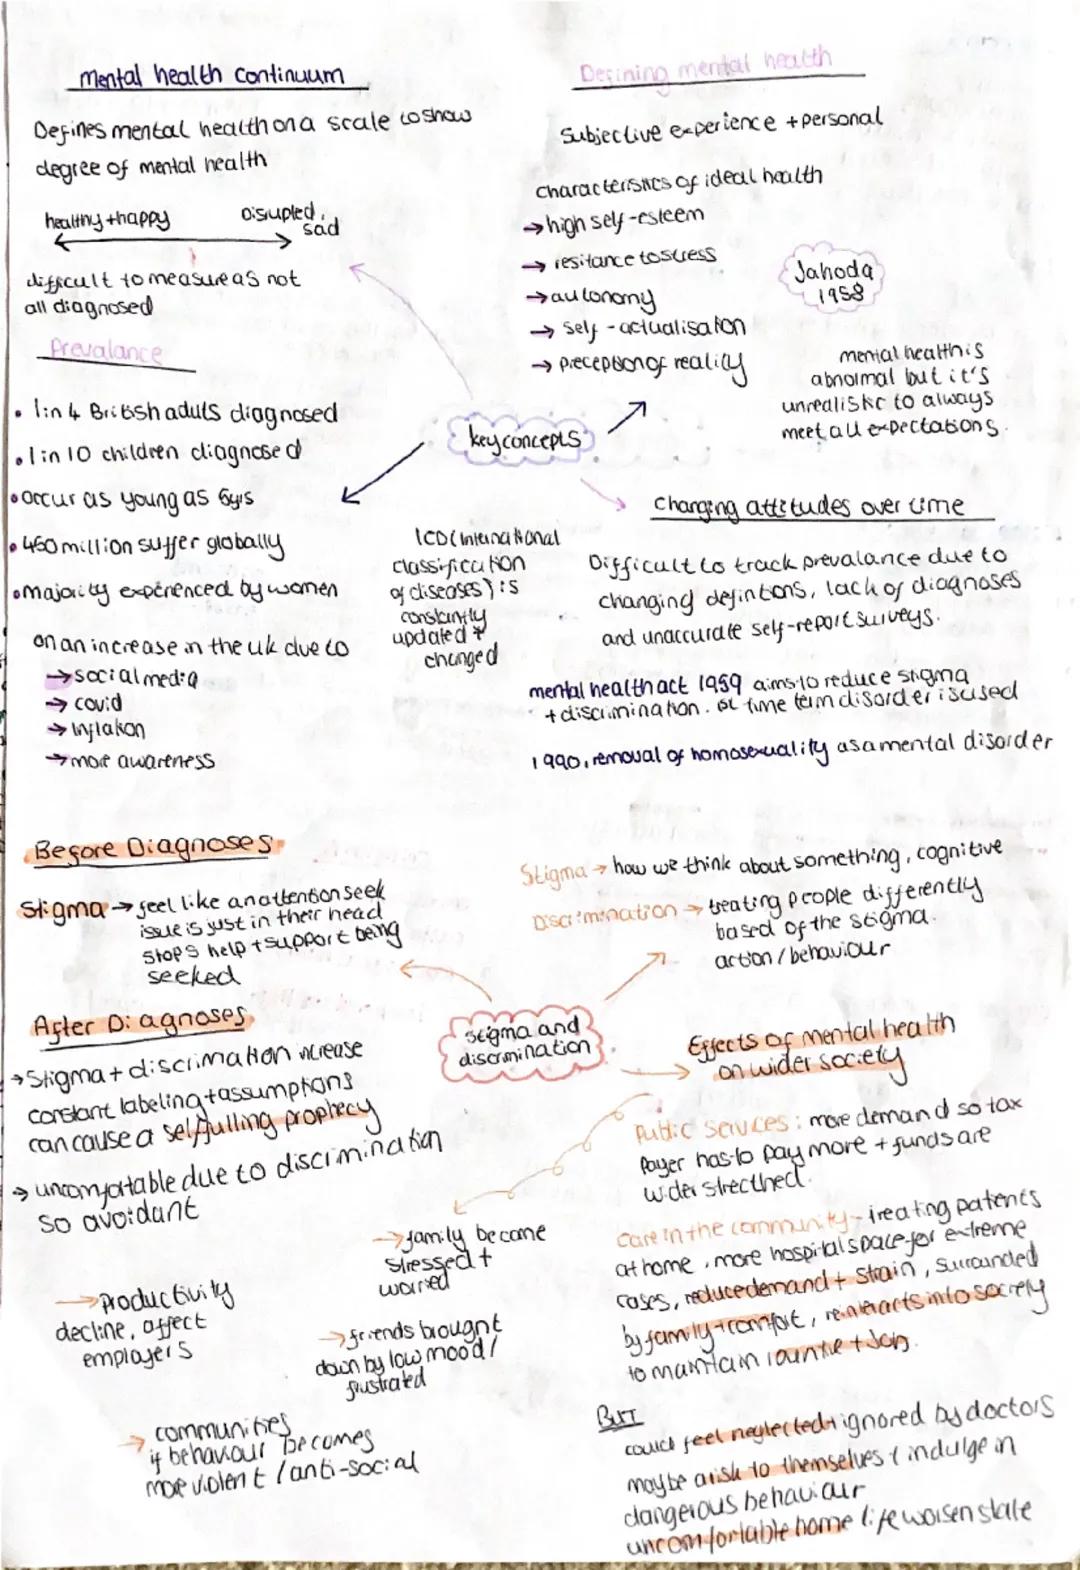 Mental health continuum
Defines mental health on a scale to show
degree of mental health
healthy + happy
Disrupted,
sad
difficult to measure as not
all diagnosed
Prevalance
• 1 in 4 British adults diagnosed
• 1 in 10 children diagnosed
• occur as young as 6yrs
• 450 million suffer globally
• majority experienced by women
on an increase in the uk due to
→ social media
→ covid
→ Inflation
→ more awareness
Defining mental health
Subjective experience + personal
characteristics of ideal health
→ high self-esteem
→ resitance to stress
→ autonomy
→ self-actualisation
→ preception of reality
Jahoda
1958
mental health is
abnormal but it's
unrealistic to always
meet all expectations.
key concepts
ICD (International
classification
of diseases) is
constantly
updated +
changed
Changing attitudes over time
Difficult to track prevalance due to
changing defintions, lack of diagnoses
and unaccurate self-report surveys.
mental health act 1959 aims to reduce stigma
+ discrimination. 1st time term disorder is used
1990, removal of homosexuality as a mental disorder
Before Diagnoses
Stigma → feel like an attention seek
issue is just in their head
stops help + support being
seeked
After Diagnoses
→ Stigma + discrimation increase
constant labeling + assumptions
can cause a selffulling prophecy
→ uncomfortable due to discrimination
so avoidant
Stigma → how we think about something, cognitive
Discrimination → treating people differently
based of the stigma.
action / behaviour
Stigma and
discrimination
Effects of mental health
on wider society
Public services: more demand so tax
payer has to pay more + funds are
wider strecthed.
Care in the community - treating patients
at home, more hospital space for extreme
cases, reduce demand + strain, surrounded
by family + comfort, reinteracts into society
to maintain rountie + Job.
BUT
could feel neglected + ignored by doctors
maybe a risk to themselves + indulge in
dangerous behaviour
uncomfortable home life worsen state
→ family become
stressed +
worried
→ friends brought
down by low mood /
frustrated
→ Productivity
decline, affect
employers
→ communities
if behaviour becomes
more violent / anti-social